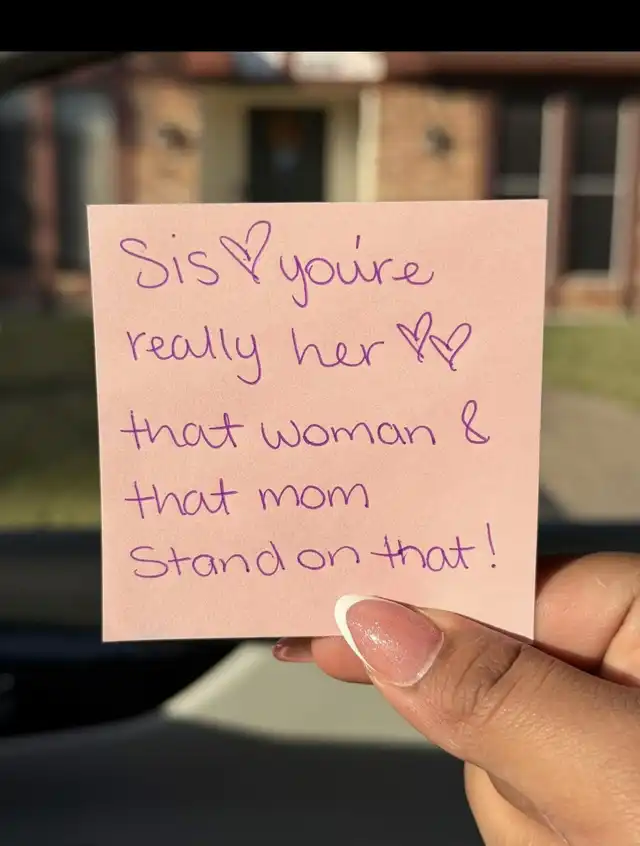 Sis♡you're
really her ♡♡
that woman &
that mom
Stand on that!